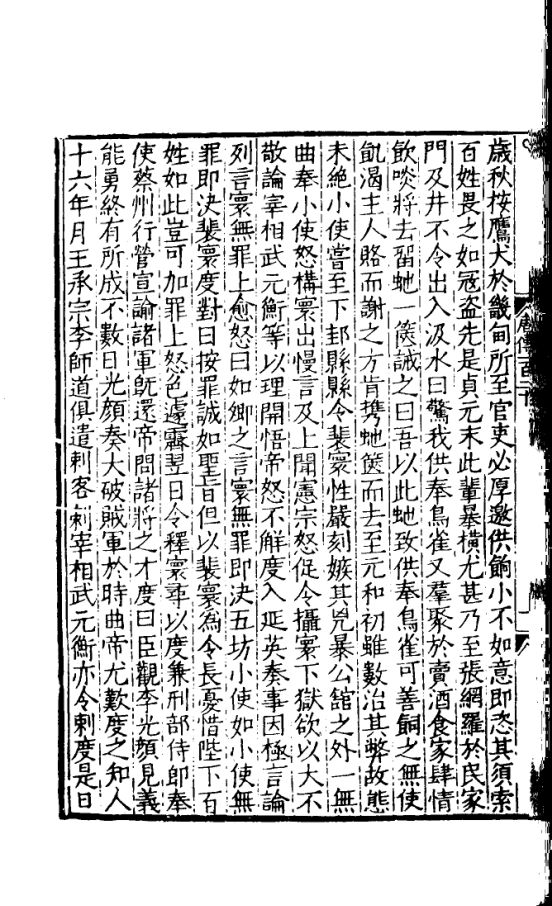 歲秋按鷹犬於畿甸所至官吏必厚邀供餉小不如意即恣其須索
百姓畏之如冦盗先是貞元末此輩暴橫尤甚乃至張網羅於民家
門及井不令出入汲水曰驚我供奉鳥雀又羣聚於賣酒食家肆情
飲啖將去留虵一篋誡之曰吾以此虵致供奉鳥雀可善飼之無使
飢渴主人賂而謝之方肯携虵篋而去至元和初雖數治其弊故態
未絶小使嘗至下邽縣縣令裴寰性嚴刻嫉其兇暴公舘之外一無
曲奉小使怒構寰出慢言及上聞憲宗怒促令攝寰下獄欲以大不
敬論宰相武元衡等以理開悟帝怒不解度入延英奏事因極言論
列言寰無罪上愈怒曰如卿之言寰無罪即決五坊小使如小使無
罪即決裴寰度對曰按罪誠如聖旨但以裴寰爲令長憂惜陛下百
姓如此豈可加罪上怒色遽霽翌日令釋寰尋以度兼刑部侍郎奉
使蔡州行營宣諭諸軍旣還帝問諸將之才度曰臣觀李光顔見義
能勇終有所成不數日光顔奏大破賊軍於時曲帝尤歎度之知人
十六年月王承宗李師道俱遣刺客刺宰相武元衡亦令刺度是日
唐傳百二十